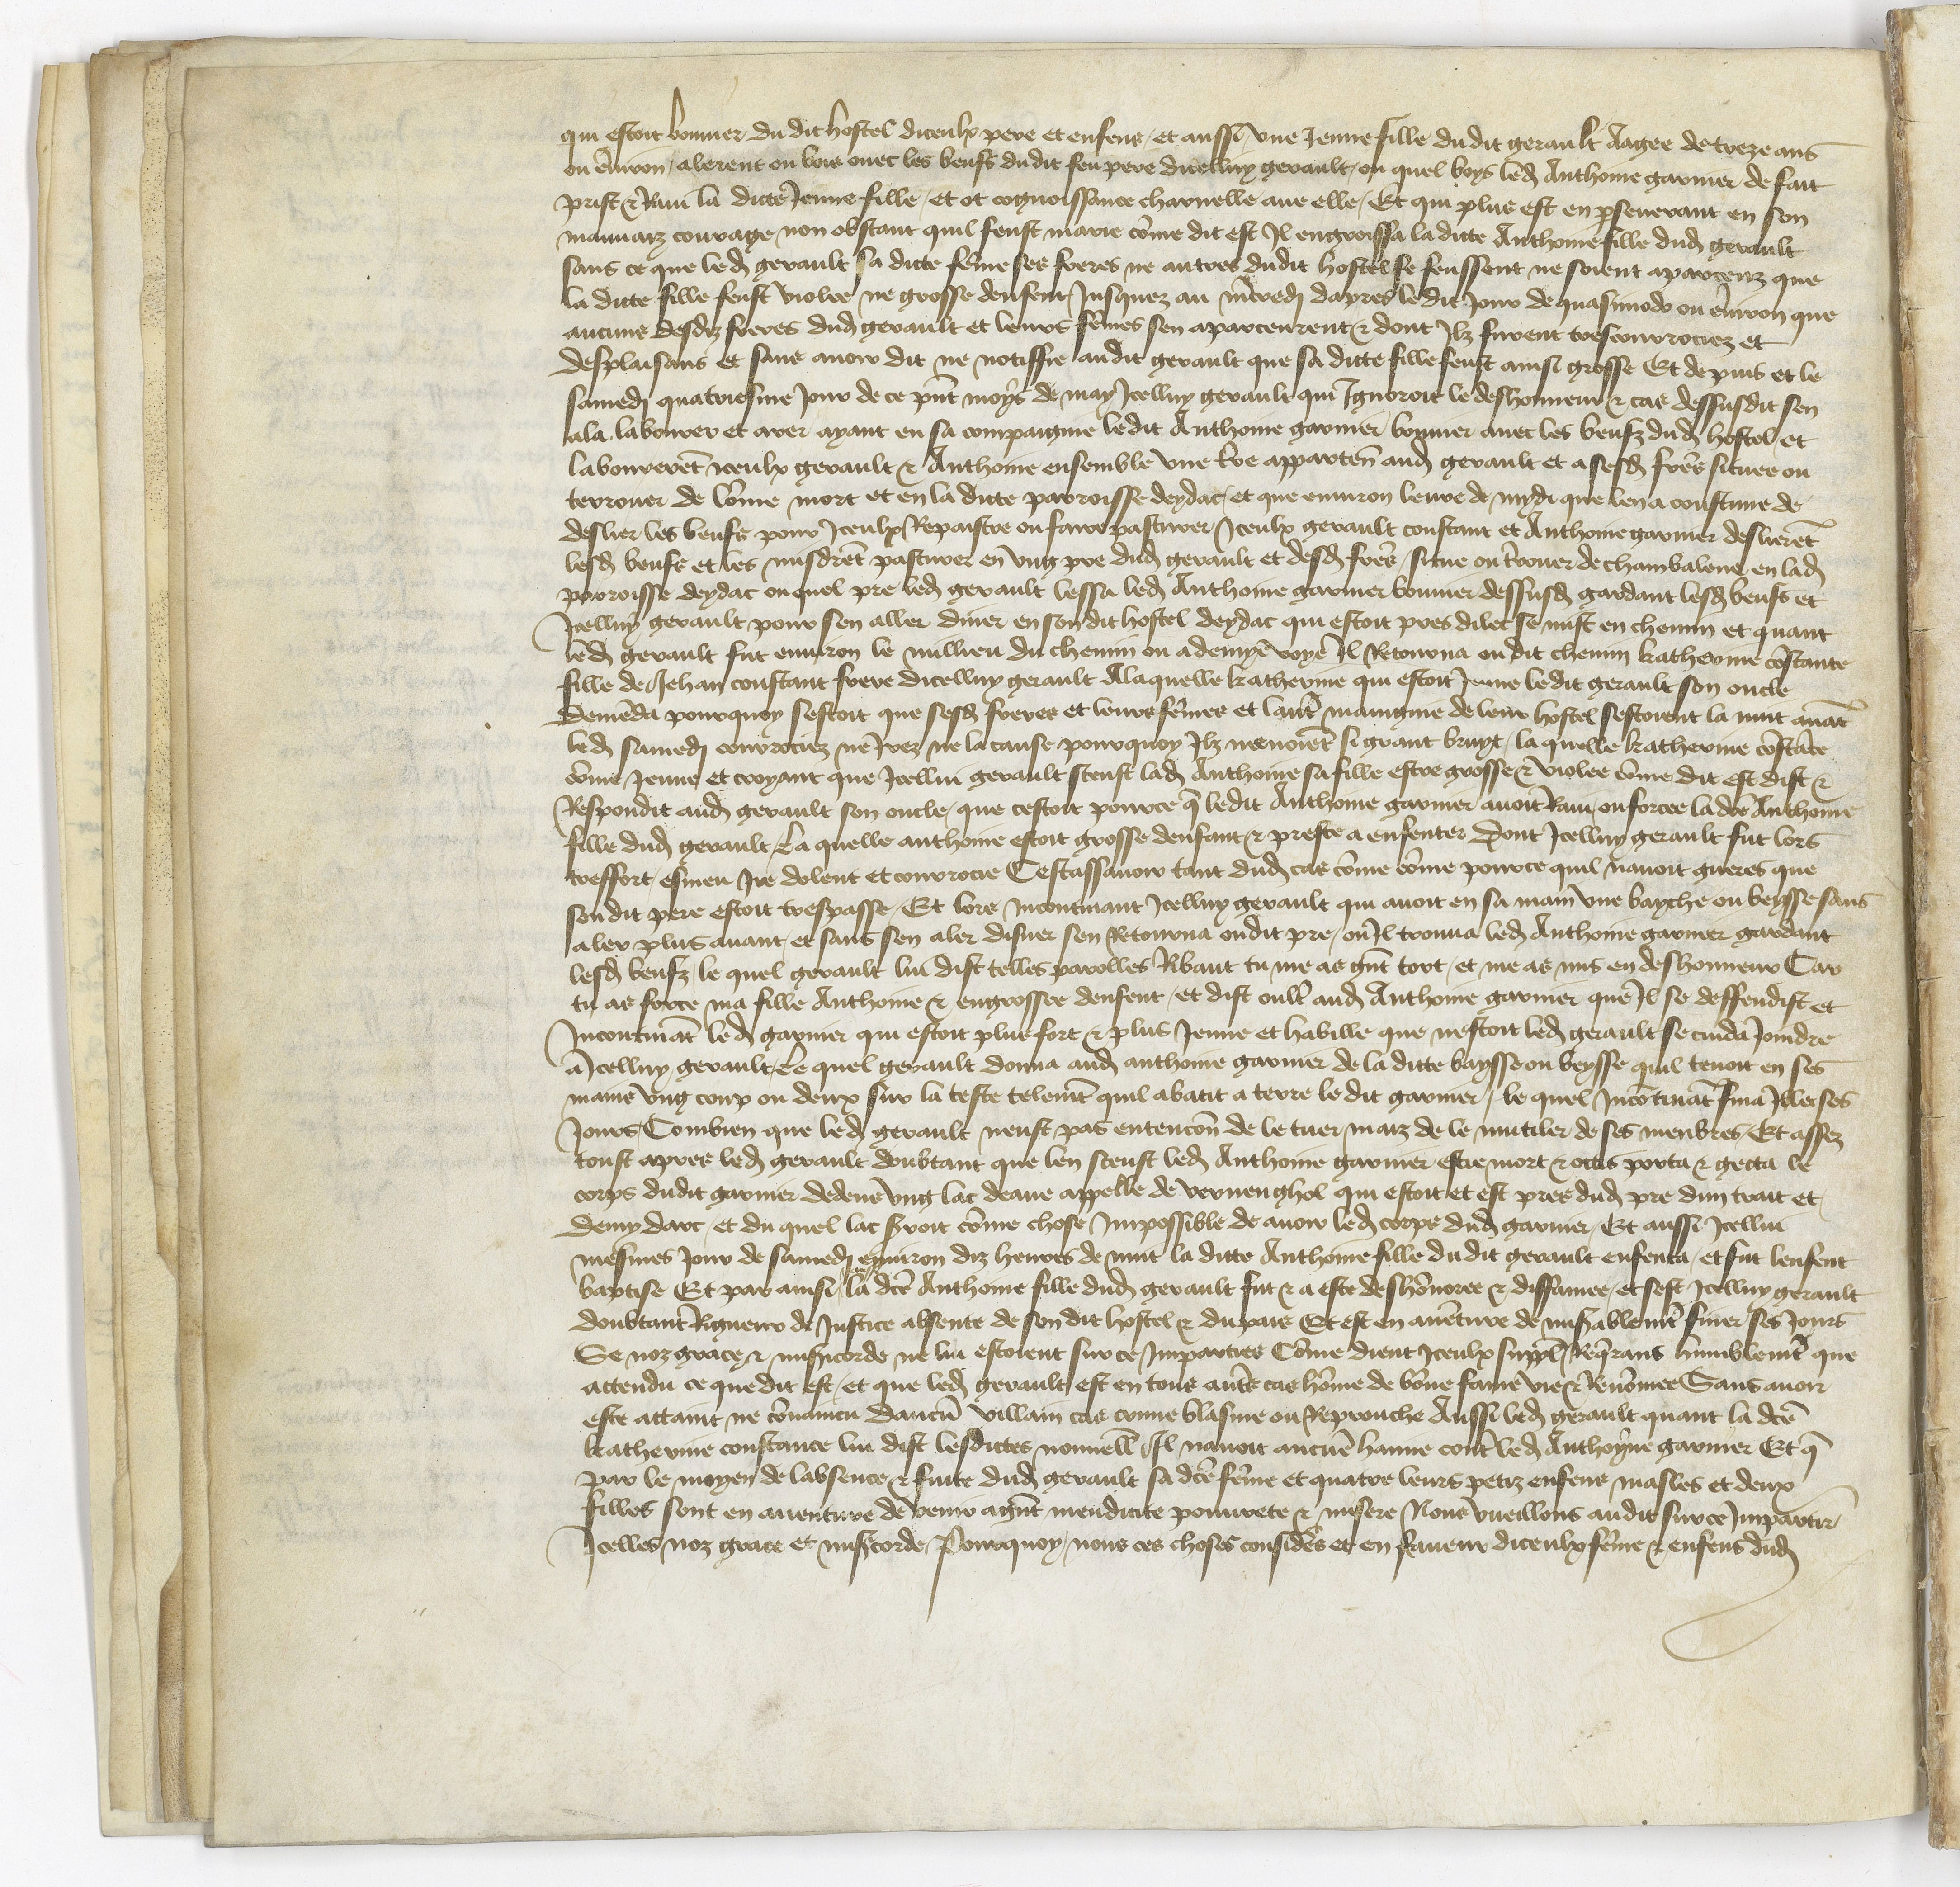 qui estoit bouvier du dit hostel diceulx pere et enfens / et aussi une Jenne fille dudit gerault Aagee de treze ans
ou envirõ / alerent ou bois avec les beufs dudit feu pere dicelluy gerault / ou quel boys led Anthoine garnier de fait
prist & Ravi la dicte Jenne fille / et ot cognoissance charnelle ave elle / Et qui plus est en pseverant en son
mauvaiz courage non obstant quil feust marie cõme dit est Il engroissa la dicte Anthoine fille dud gerault
sans ce que led gerault sa dicte fẽme ses freres ne autres dudit hostel se feussent ne soient aparceuz que
la dicte fille feust violee ne grosse denfent / Jusquez au mecredi dapres le dit Jour de quasimodo ou environ que
aucuns desdiz freres dud gerault et leurs fẽmes sen aparceurent & dont Ilz furent trescourrociez et
desplaisans et sans avoir dit ne notiffie audit gerault que sa dicte fille feust ainsi grosse Et depuis et le
samedi quatriesme Jour de ce pñt moys de may Icelluy gerault qui Ignoroit le deshonneur & cas dessusdit sen
ala labourer et arer ayant en sa compaignie ledit Anthoine garnier bouvier avec les beufz dud hostel et
labourerẽt iceulx gerault & Anthoine ensemble une tre appartenñ aud gerault et a sesd freres situee ou
terrouer de lõme mort et en la dicte parroisse deydac / et que environ leure de mydi que len a coustume de
deslier les beufs pour Iceulx Repaistre ou faire pasturer / Iceulx gerault constant et Anthoine garnier deslierẽt
lesd beufs et les misdrẽt pasturer en ung pre dud gerault et desd freres / situe ou trouer de chambalene en lad
parroisse deydac ou quel pre led gerault lessa led Anthoine garnier bouvier dessusd gardant lesd beufs et
Icelluy gerault pour sen aller diner en son dit hostel deydac qui estoit pres dilec se mist en chemin et quant
led gerault fut environ le millieu du chemin ou a demye voye Il Retourna ou dit chemin katherine cõstante
fille de Jehan constant frere dicelluy gerault A laquelle katherine qui estoit Jenne ledit gerault son oncle
demẽda pourquoy sestoit que sesd freres et leurs fẽmes et laut maingnie de leur hostel sestoient la nuit avãt
led samedi courrociez ne Irez ne la cause pourquoy Ilz menoiẽt si grant bruyt / la quelle katherine cõstãte
cõme Jenne et croyant que Icellui gerault sceust lad Anthoine sa fille estre grosse & violee cõme dit est dist &
Respondit aud gerault son oncle / que cestoit pource q ledit Anthoine garnier avoit Ravi ou forcee la dce Anthoine
fille dud gerault / La quelle anthoine estoit grosse denfant & preste a enfenter Dont Icelluy gerault fut lors
tresfort esmeu Ire dolent et courrocie Cestassavoir tant dud cas cõme cõme pource quil navoit gueres que
son dit pere estoit trespasse / Et lors Incontinant Icelluy gerault qui avoit en sa main une bayche ou beysse sans
aler plus avant et sans sen aler disner sen Retourna oudit pre / ou Il trouva led Anthoine garnier gardant
lesd beufz / le quel gerault lui dist telles parolles Ribaut tu me as gñt tort / et me as mis en deshonneur Car
tu as force ma fille Anthoine & engrossee denfent / et dist oult aud Anthoine garnier que Il se deffendist et
Incontinãt led garnier qui estoit plus fort & plus Jenne et habille que nestoit led gerault se cuida Joindre
a Icelluy gerault / Le quel gerault donna aud anthoine garnier de la dicte baysse ou beysse quil tenoit en ses
mains ung coup ou deux sur la teste telemẽt quil abatit a terre le dit garnier / le quel Incõtinãt fina Illec ses
Jours / Combien que led gerault neust pas entencõn de le tuer maiz de le mutiler de ses menbres / Et assez
toust apres led gerault doubtant que len sceust led Anthoine garnier estre mort & occis porta & gecta le
corps dudit garnier dedens ung lac deaue appelle de vernenghol qui estoit et est pres dud pre dun trait et
demy darc / et du quel lac seroit cõme chose Impossible de avoir led corps dud garnier / Et aussi Icellui
mesmes Jour de samedi environ diz heures de nuit la dicte Anthoine fille du dit gerault enfenta / et fut lenfent
baptise Et par ainsi la dcẽ Anthoine fille dud gerault fut & a este deshõnoree & diffamee / et sest Icelluy gerault
doubtant Rigueur de Justice absente de son dit hostel & du pais Et est en avẽture de misablemẽt finer ses Jours
Se noz grace & misicorde ne lui estoient sur ce Imparties Cõme dient Iceulx suppl Reqrans humblemẽt que
attendu ce que dit est / et que led gerault est en tous autres cas hõme de bõne fame vie & Renõmee Sans avoir
este attaint ne cõvaincu daucũ villain cas crime blasme ou Reprouche Aussi led gerault quant la dcẽ
katherine constance lui dist lesdictes nouvell Il navoit aucune hayne cont led Anthoyne garnier Et q
par le moyen de labsence & fuite dud gerault sa dcẽ fẽme et quatre leurs petiz enfens masles et deux
filles sont en aventure de venir a gñt mendicite pouvrete & misere Nous vueillons audit sur ce Impartir
Icelles noz grace et misicorde / Pourquoy / nous ces choses considẽs et en faveur diceulx fẽme & enfens dud